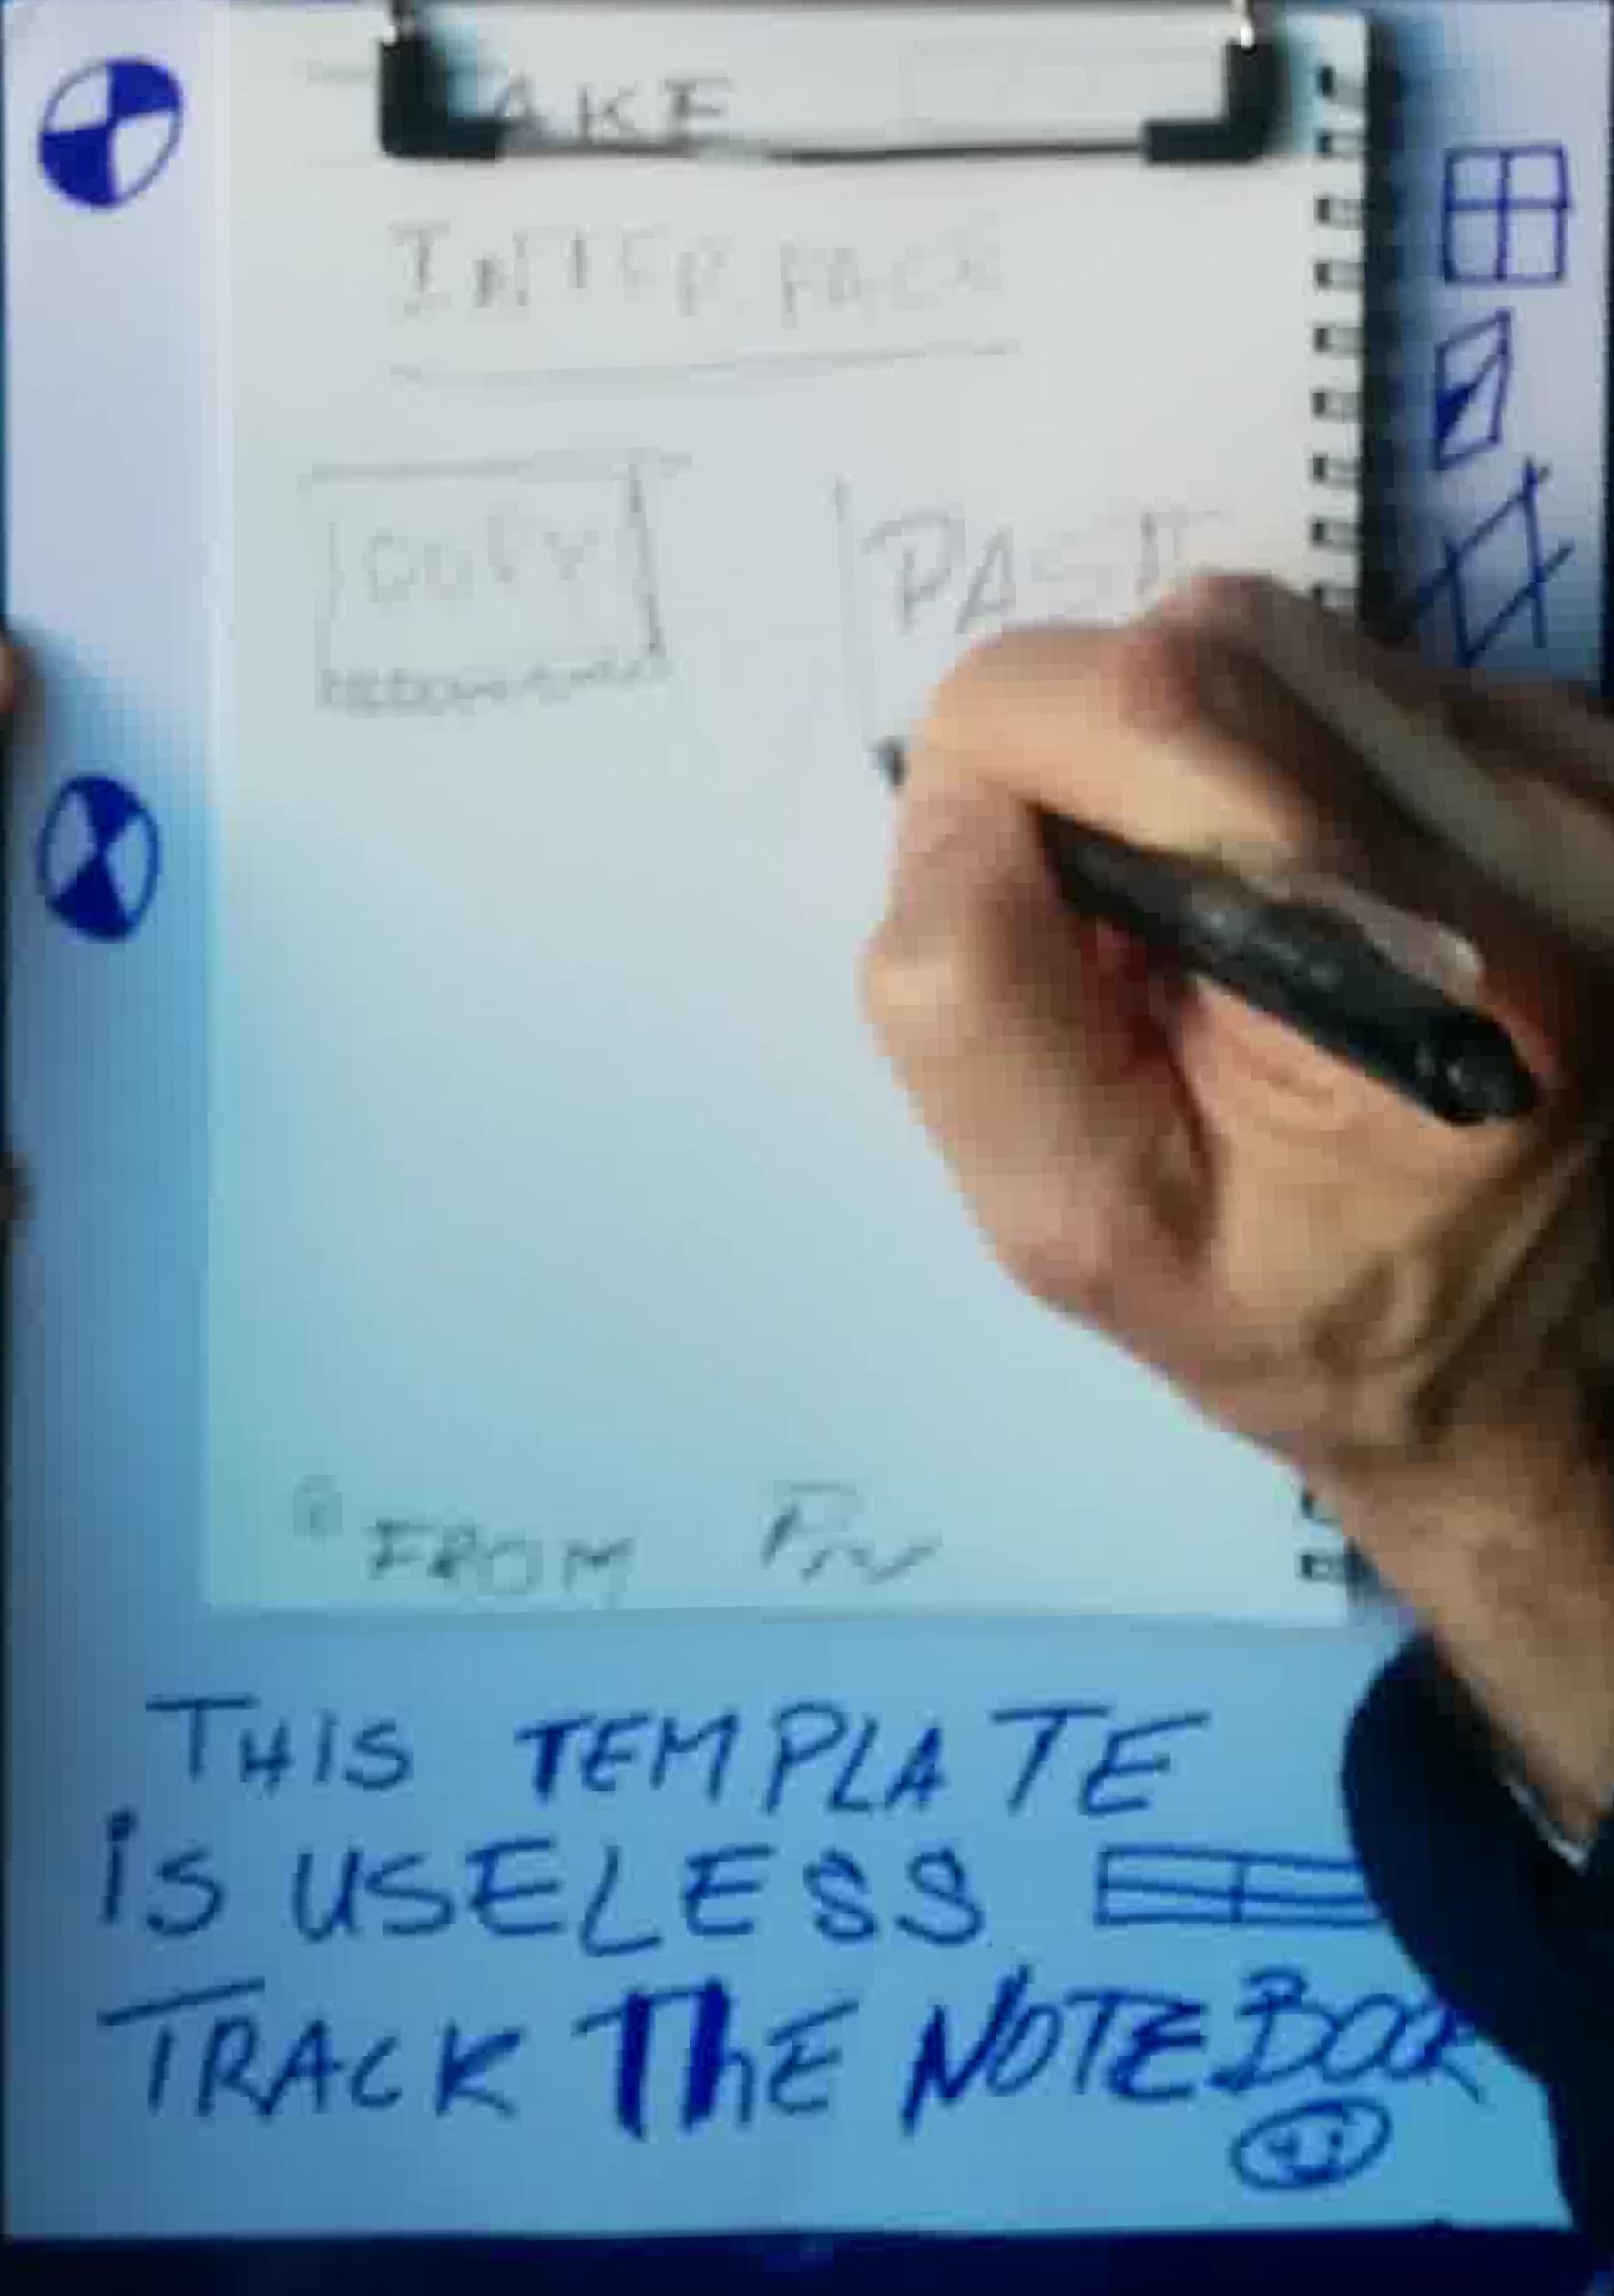 AKE
INTERFACE
COPY PAST
FROM
THIS TEMPLATE
iS USELESS
TRACK ThE NOTEBOOK